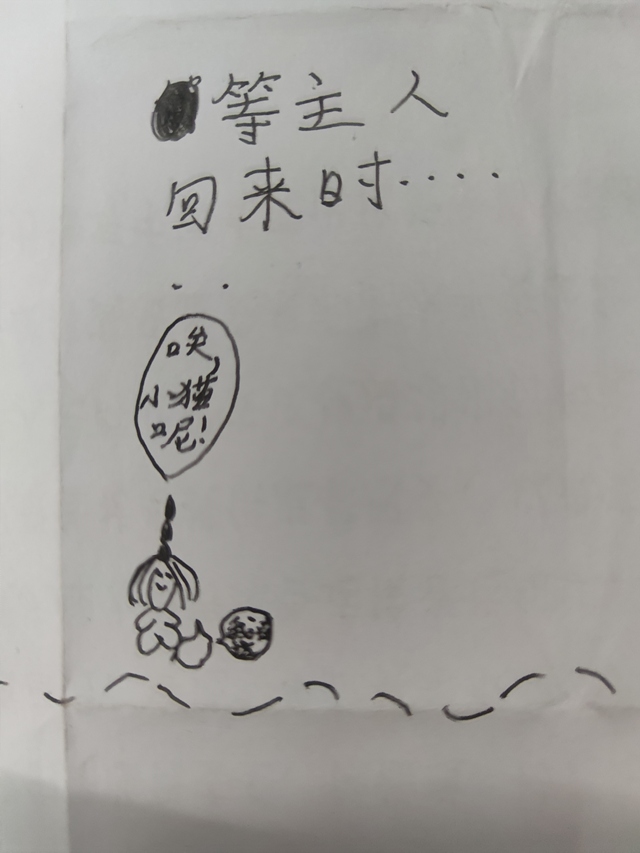 等主人
回来时......
唉,
小猫
呢!